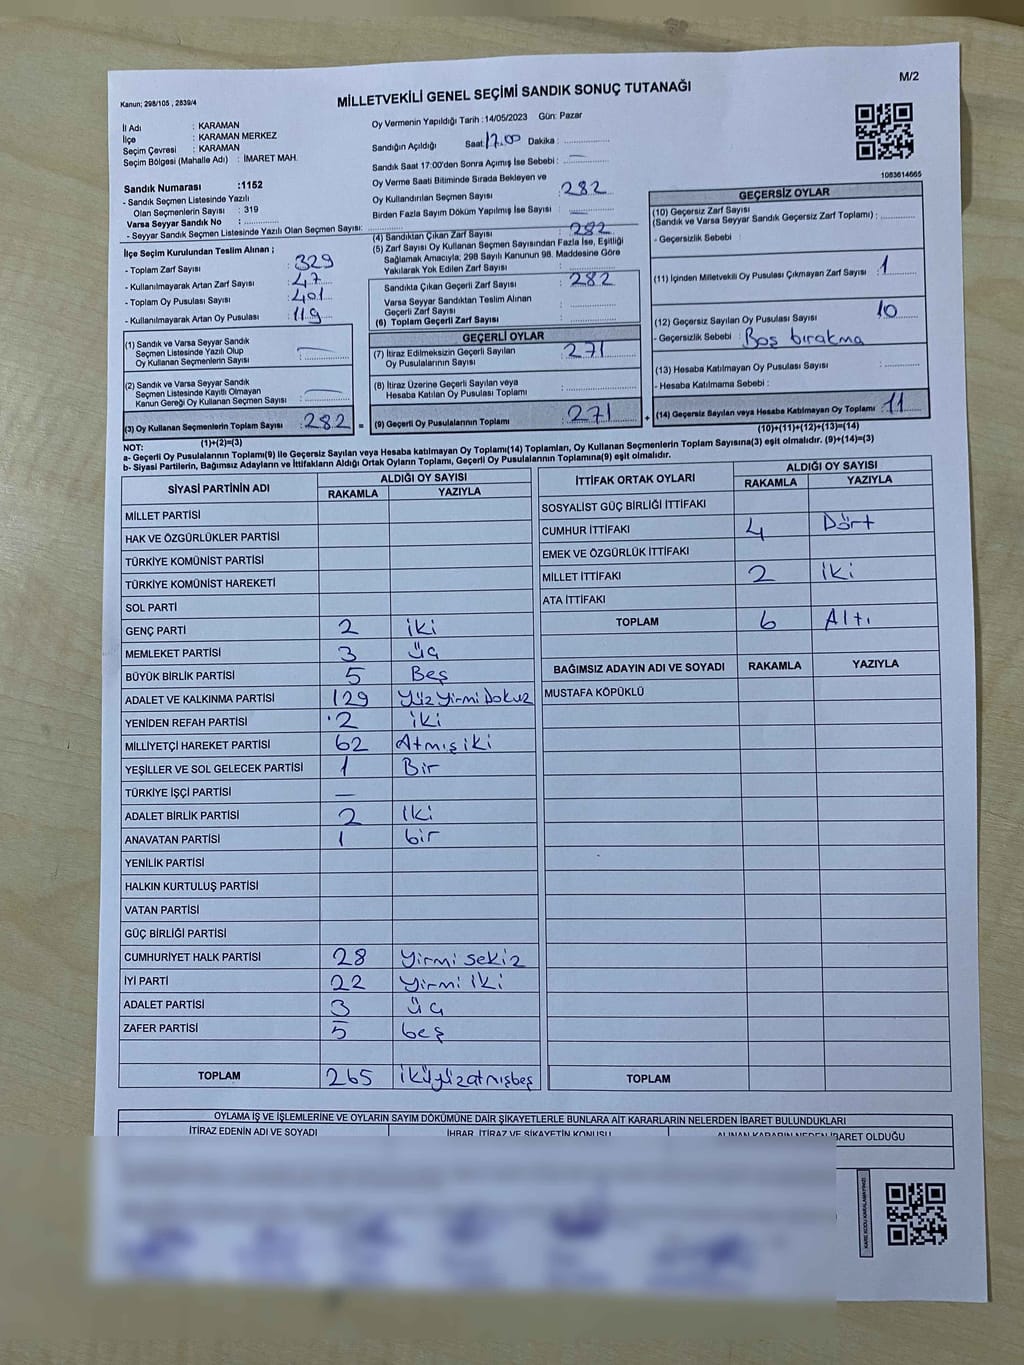 M/2
Kanun; 298/105 , 2839/4
MİLLETVEKİLİ GENEL SEÇİMİ SANDIK SONUÇ TUTANAĞI
İl Adı : KARAMAN
İlçe : KARAMAN MERKEZ
Seçim Çevresi : KARAMAN
Seçim Bölgesi (Mahalle Adı) : İMARET MAH.
Sandık Numarası :1152
- Sandık Seçmen Listesinde Yazılı
Olan Seçmenlerin Sayısı : 319
Varsa Seyyar Sandık No :
- Seyyar Sandık Seçmen Listesinde Yazılı Olan Seçmen Sayısı:
İlçe Seçim Kurulundan Teslim Alınan ;
- Toplam Zarf Sayısı : 329
- Kullanılmayarak Artan Zarf Sayısı : 47
- Toplam Oy Pusulası Sayısı : 401
- Kullanılmayarak Artan Oy Pusulası : 119
(1) Sandık ve Varsa Seyyar Sandık
Seçmen Listesinde Yazılı Olup
Oy Kullanan Seçmenlerin Sayısı :
(2) Sandık ve Varsa Seyyar Sandık
Seçmen Listesinde Kayıtlı Olmayan
Kanun Gereği Oy Kullanan Seçmen Sayısı :
(3) Oy Kullanan Seçmenlerin Toplam Sayısı : 282 =
(1)+(2)=(3)
Oy Vermenin Yapıldığı Tarih : 14/05/2023 Gün: Pazar
Sandığın Açıldığı Saat: 17.00 Dakika :
Sandık Saat 17:00'den Sonra Açımış İse Sebebi : —
Oy Verme Saati Bitiminde Sırada Bekleyen ve
Oy Kullandırılan Seçmen Sayısı : 282
Birden Fazla Sayım Döküm Yapılmış İse Sayısı : —
(4) Sandıktan Çıkan Zarf Sayısı : 282
(5) Zarf Sayısı Oy Kullanan Seçmen Sayısından Fazla İse, Eşitliği
Sağlamak Amacıyla; 298 Sayılı Kanunun 98. Maddesine Göre
Yakılarak Yok Edilen Zarf Sayısı :
Sandıkta Çıkan Geçerli Zarf Sayısı : 282
Varsa Seyyar Sandıktan Teslim Alınan
Geçerli Zarf Sayısı :
(6) Toplam Geçerli Zarf Sayısı :
GEÇERLİ OYLAR
(7) İtiraz Edilmeksizin Geçerli Sayılan
Oy Pusulalarının Sayısı : 271
(8) İtiraz Üzerine Geçerli Sayılan veya
Hesaba Katılan Oy Pusulası Toplamı :
(9) Geçerli Oy Pusulalarının Toplamı : 271 +
1083614665
GEÇERSİZ OYLAR
(10) Geçersiz Zarf Sayısı
(Sandık ve Varsa Seyyar Sandık Geçersiz Zarf Toplamı) :
- Geçersizlik Sebebi :
(11) İçinden Milletvekili Oy Pusulası Çıkmayan Zarf Sayısı : 1
(12) Geçersiz Sayılan Oy Pusulası Sayısı : 10
- Geçersizlik Sebebi : Boş bırakma
(13) Hesaba Katılmayan Oy Pusulası Sayısı :
- Hesaba Katılmama Sebebi :
(14) Geçersiz Sayılan veya Hesaba Katılmayan Oy Toplamı : 11
(10)+(11)+(12)+(13)=(14)
NOT:
a- Geçerli Oy Pusulalarının Toplamı(9) ile Geçersiz Sayılan veya Hesaba katılmayan Oy Toplamı(14) Toplamları, Oy Kullanan Seçmenlerin Toplam Sayısına(3) eşit olmalıdır. (9)+(14)=(3)
b- Siyasi Partilerin, Bağımsız Adayların ve İttifakların Aldığı Ortak Oyların Toplamı, Geçerli Oy Pusulalarının Toplamına(9) eşit olmalıdır.
SİYASİ PARTİNİN ADI ALDIĞI OY SAYISI
RAKAMLA YAZIYLA
MİLLET PARTİSİ
HAK VE ÖZGÜRLÜKLER PARTİSİ
TÜRKİYE KOMÜNİST PARTİSİ
TÜRKİYE KOMÜNİST HAREKETİ
SOL PARTİ
GENÇ PARTİ 2 iki
MEMLEKET PARTİSİ 3 üç
BÜYÜK BİRLİK PARTİSİ 5 Beş
ADALET VE KALKINMA PARTİSİ 129 Yüz Yirmi Dokuz
YENİDEN REFAH PARTİSİ 2 iki
MİLLİYETÇİ HAREKET PARTİSİ 62 Atmış iki
YEŞİLLER VE SOL GELECEK PARTİSİ 1 Bir
TÜRKİYE İŞÇİ PARTİSİ —
ADALET BİRLİK PARTİSİ 2 İki
ANAVATAN PARTİSİ 1 bir
YENİLİK PARTİSİ
HALKIN KURTULUŞ PARTİSİ
VATAN PARTİSİ
GÜÇ BİRLİĞİ PARTİSİ
CUMHURİYET HALK PARTİSİ 28 Yirmi sekiz
İYİ PARTİ 22 Yirmi iki
ADALET PARTİSİ 3 üç
ZAFER PARTİSİ 5 beş
TOPLAM 265 ikiyüzatmışbeş
İTTİFAK ORTAK OYLARI ALDIĞI OY SAYISI
RAKAMLA YAZIYLA
SOSYALİST GÜÇ BİRLİĞİ İTTİFAKI
CUMHUR İTTİFAKI 4 Dört
EMEK VE ÖZGÜRLÜK İTTİFAKI
MİLLET İTTİFAKI 2 iki
ATA İTTİFAKI
TOPLAM 6 Altı
BAĞIMSIZ ADAYIN ADI VE SOYADI RAKAMLA YAZIYLA
MUSTAFA KÖPÜKLÜ
TOPLAM
OYLAMA İŞ VE İŞLEMLERİNE VE OYLARIN SAYIM DÖKÜMÜNE DAİR ŞİKAYETLERLE BUNLARA AİT KARARLARIN NELERDEN İBARET BULUNDUKLARI
İTİRAZ EDENİN ADI VE SOYADI İHBAR, İTİRAZ VE ŞİKAYETİN KONUSU ALINAN KARARIN NEDEN İBARET OLDUĞU
KARE KODU KARALAMAYINIZ!